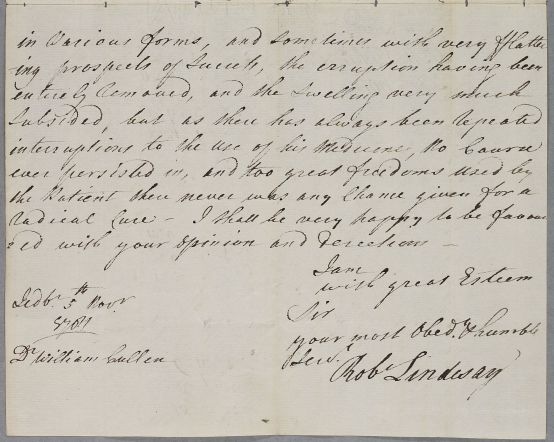 in Various forms, and sometimes with very flatter
ing prospects of Success, the erruption having been
entirely removed, and the Swelling very much
Subsided, but as there has always been repeated
interruptions to the use of his Medicens, No Course
ever persisted in, and too great freedoms used by
the Patient there never was any Chance given for a
radical Cure – I shall be very happy to be favour
ed with your Opinion and Derections –
I am
with great Esteem
Sir
your most Obedt. & humble
Servt.
Robt Lindesay
Jedbr. 5th Novr.
1781
Dr William Cullen